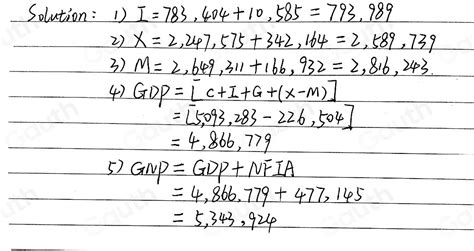 Solution: 1) I = 783,404 + 10,585 = 793,989
2) X = 2,247,575 + 342,164 = 2,589,739
3) M = 2,649,311 + 166,932 = 2,816,243
4) GDP = [C+I+G+(X-M)]
= [5,093,283 - 226,504]
= 4,866,779
5) GNP = GDP + NFIA
= 4,866,779 + 477,145
= 5,343,924